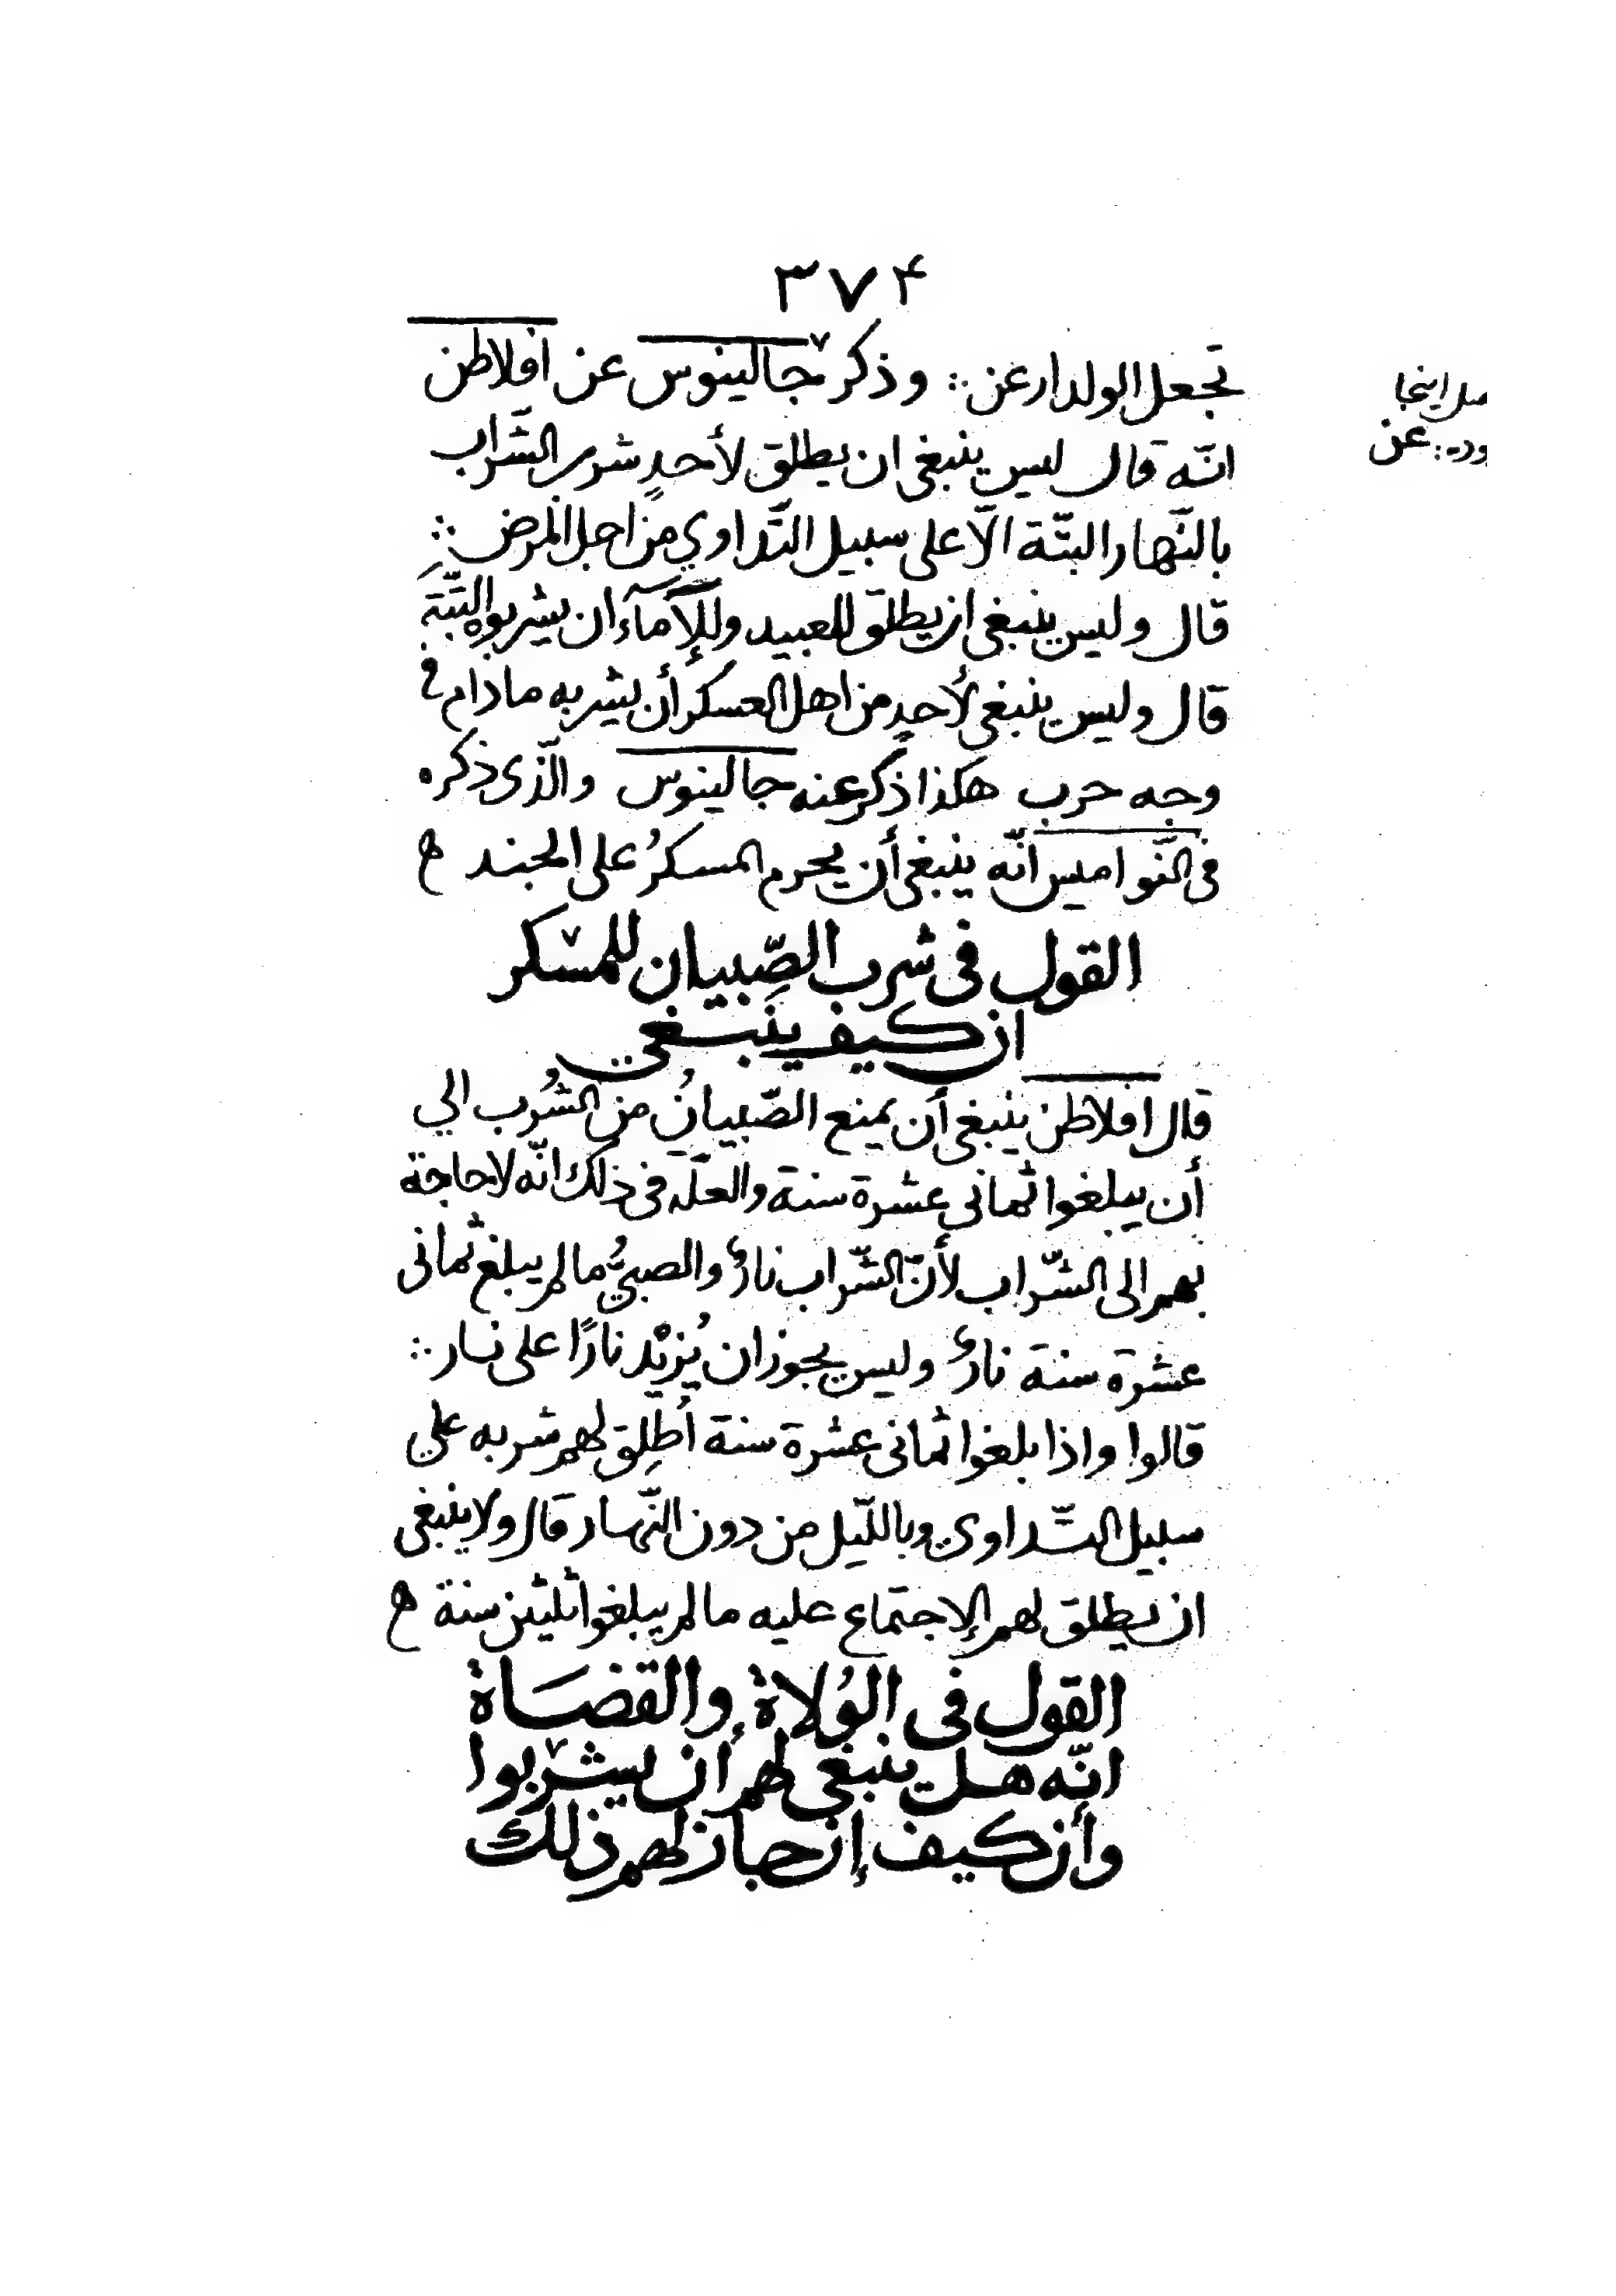 ٣٧۴
تجعل الولد ارعن ؞ وذكر جالينوس عن افلاطن
انّه قال ليس ينبغى ان يطلق لأحدٍ شرب الشّراب
بالنّهار البتّة الّا على سبيل التّداوي من اجل المرض ؞
قال وليس ينبغى ان يطلق للعبيد وللإمآء ان يشربوه البتّة
قال وليس ينبغى لأحدٍ من اهل العسكر أن يشربه مادام فى
وجه حرب هكذا ذكر عنه جالينوس والّذى ذكره
فى النّواميس انّه ينبغى أن يحرم المسكرُ على الجند ه
القول فى شرب الصِّبيان للمسكر
ان كيف ينبغي
قال افلاطن ينبغى أن يمنع الصّبيانُ من الشُرب الي
أن يبلغوا ثماني عشرة سنة والعلّه فى ذلك انّه لا حاجة
بهم الى الشّراب لأنّ الشّراب نارٌ والصبىُّ ما لم يبلغ ثمانى
عشرة سنة نارٌ وليس يجوز ان يُزيْد نارًا على نار ؞
قالوا واذا بلغوا ثمانى عشرة سنة أُطلِق لهم شربه علي
سبيل التّداوي وبالليّل من دون النّهار قال ولا ينبغى
ان يطلق لهم الإجتماع عليه ما لم يبلغوا ثلثين سنة ه
القول فى الوُلاة والقضَاة
انّه هل ينبغى لهم أن يشربوا
وأن كيف إن جاز لهم ذلك
اينجا
عن